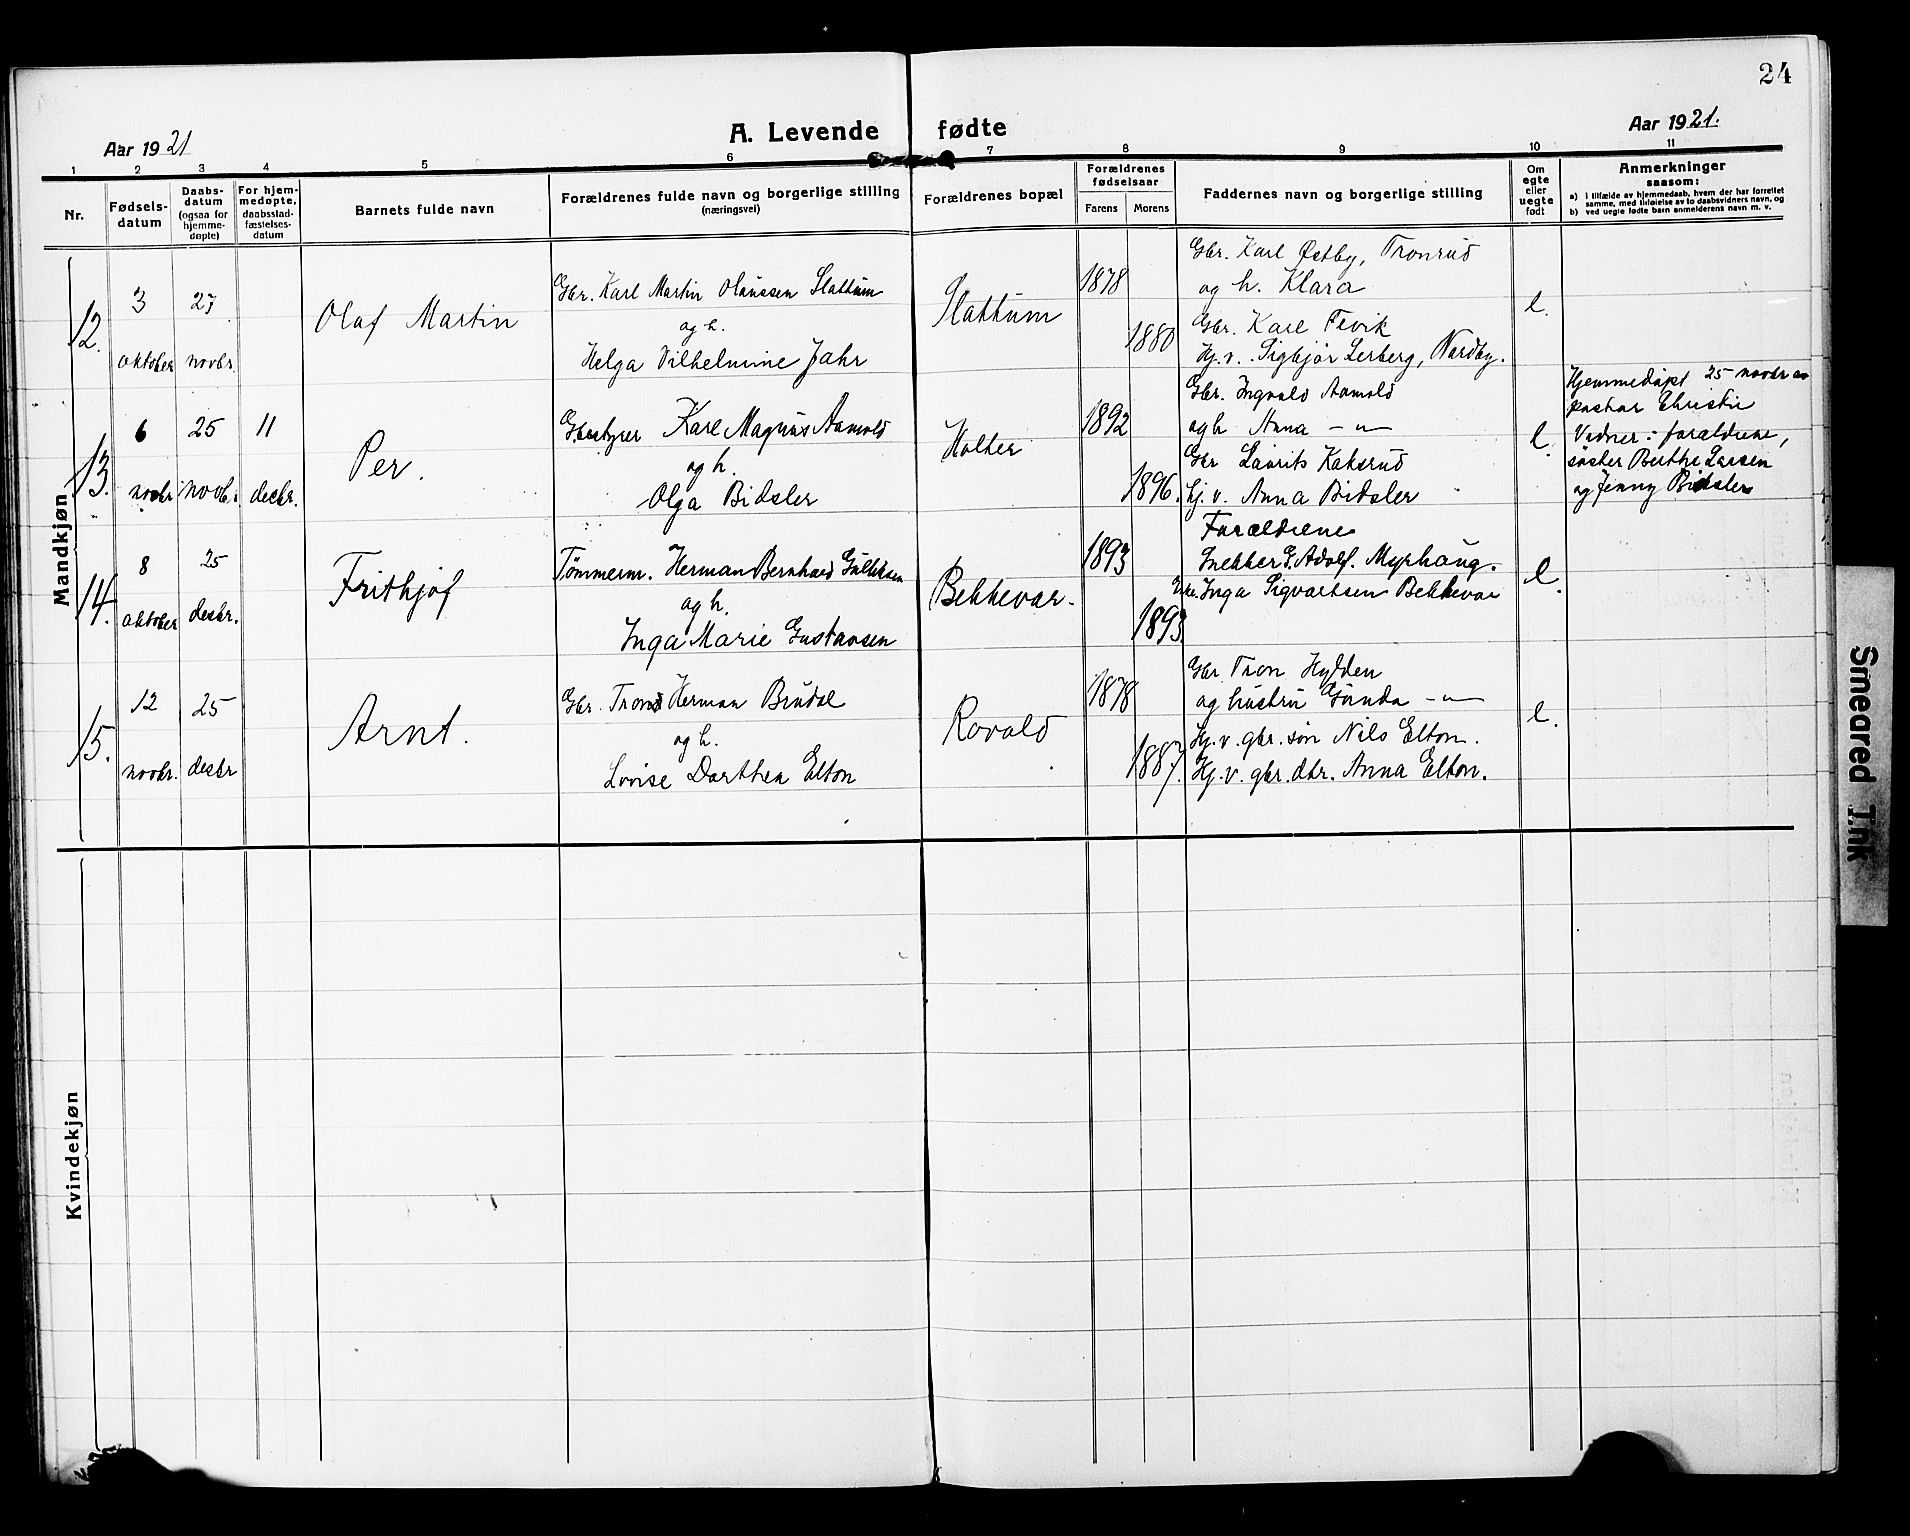 24
Aar 1921
A. Levende fødte
Aar 1921.
1 2 3 4 5 6 7 8 9 10 11
Nr.
Fødsels-
datum
Daabs-
datum
(ogsaa for
hjemme-
døpte)
For hjem-
medøpte,
daabsstad-
fæstelses-
datum
Barnets fulde navn
Forældrenes fulde navn og borgerlige stilling
(næringsvei)
Forældrenes bopæl
Forældrenes
fødselsaar
Farens Morens
Faddernes navn og borgerlige stilling
Om
egte
eller
uegte
født
Anmerkninger
saasom:
a) i tilfælde av hjemmedaab, hvem der har forrettet
samme, med tilføielse av to daabsvidners navn, og
b) ved uegte fødte barn anmelderens navn m. v.
Mandkjøn
12.
3
oktober
27
novbr.
Olaf Martin
Gbr. Karl Martin Olaussen Slattum
og h.
Helga Vilhelmine Jahr
Slattum
1878
1880
Gbr. Karl Østby, Tronrud
og h. Klara
Gbr. Karl Fevik
Hj. v. Sigbjør Lerberg, Nordby.
e.
13.
6
novbr
25
novbr.
11
decbr.
Per.
Gbestyrer Karl Magnus Aamold
og h.
Olga Bidsler
Holter
1892
1896.
Gbr. Ingvald Aamold
og h Anna — " —
Gbr Laurits Kaksrud
hj. v. Anna Bidsler
e.
Hjemmedøpt 25 novbr av
pastor Christie
Vidner: forældrene,
søster Berthe Larsen
og Jenny Bidsler
14.
8
oktober
25
decbr.
Frithjof
Tømmerm. Herman Bernhard Gulliksen
og h.
Inga Marie Gustavsen
Bekkevar.
1893
1893
Forældrene
Snekker G. Adolf. Myrhaug.
Enke Inga Sigvartsen Bekkevar
e.
15.
12
novbr.
25
decbr
Arnt.
Gbr. Trond Herman Brudal
og h.
Lovise Dorthea Elton
Rovold
1878
1887.
Gbr. Tron Hylden
og hustru Gunda — " —
Hj. v. gbr. søn Nils Elton.
Hj. v. gbr. dtr. Anna Elton.
e.
Kvindekjøn
Smeared Ink